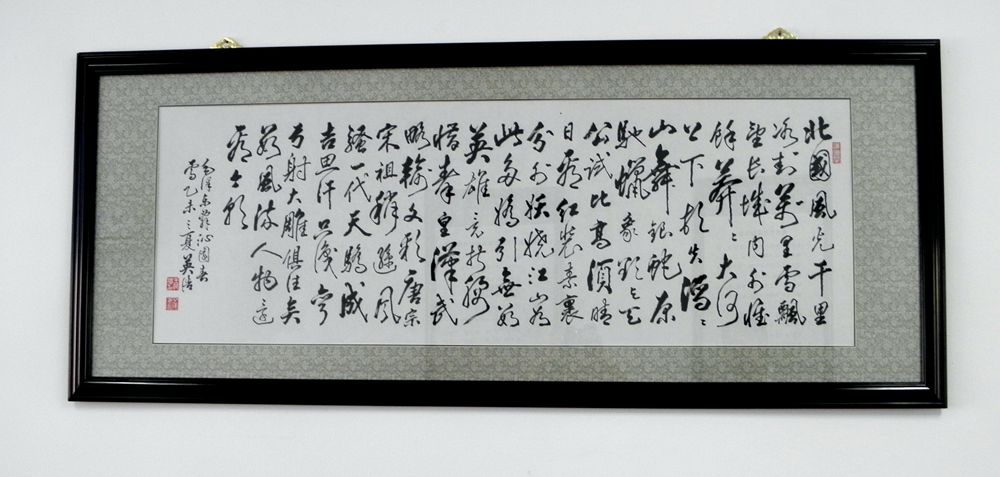 北國風光千里
冰封萬里雪飄
望長城內外惟
餘莽々大河
上下頓失滔々
山舞銀蛇原
馳蠟象欲與天
公試比高須晴
日看紅裝素裹
分外妖嬈江山如
此多嬌引無數
英雄竞折腰
惜秦皇漢武
略輸文彩唐宗
宋祖稍遜風
騷一代天驕成
吉思汗只識彎
弓射大雕俱往矣
數風流人物還
看今朝
毛澤東詞沁園春
雪乙未之夏英